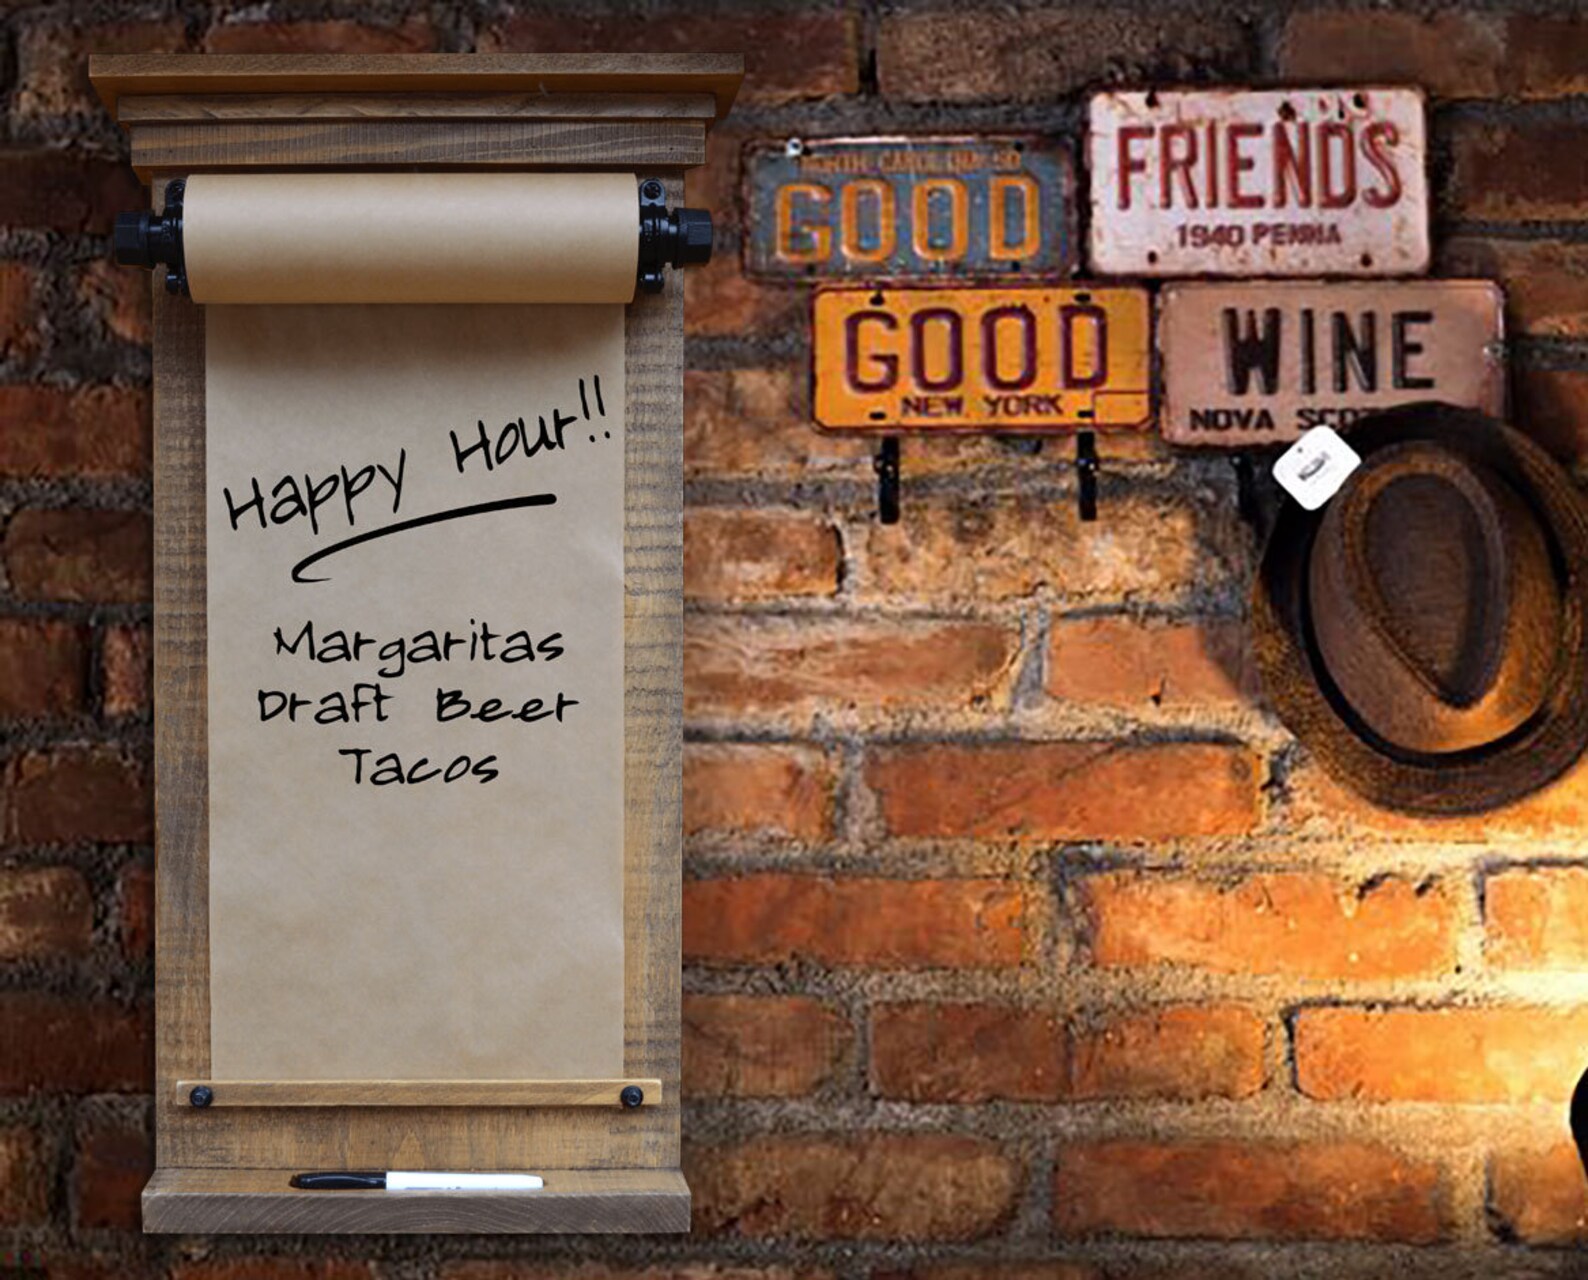 Happy Hour!!
Margaritas
Draft Beer
Tacos
NORTH CAROLINA 50
GOOD
FRIENDS
1940 PENNA
GOOD
NEW YORK
WINE
NOVA